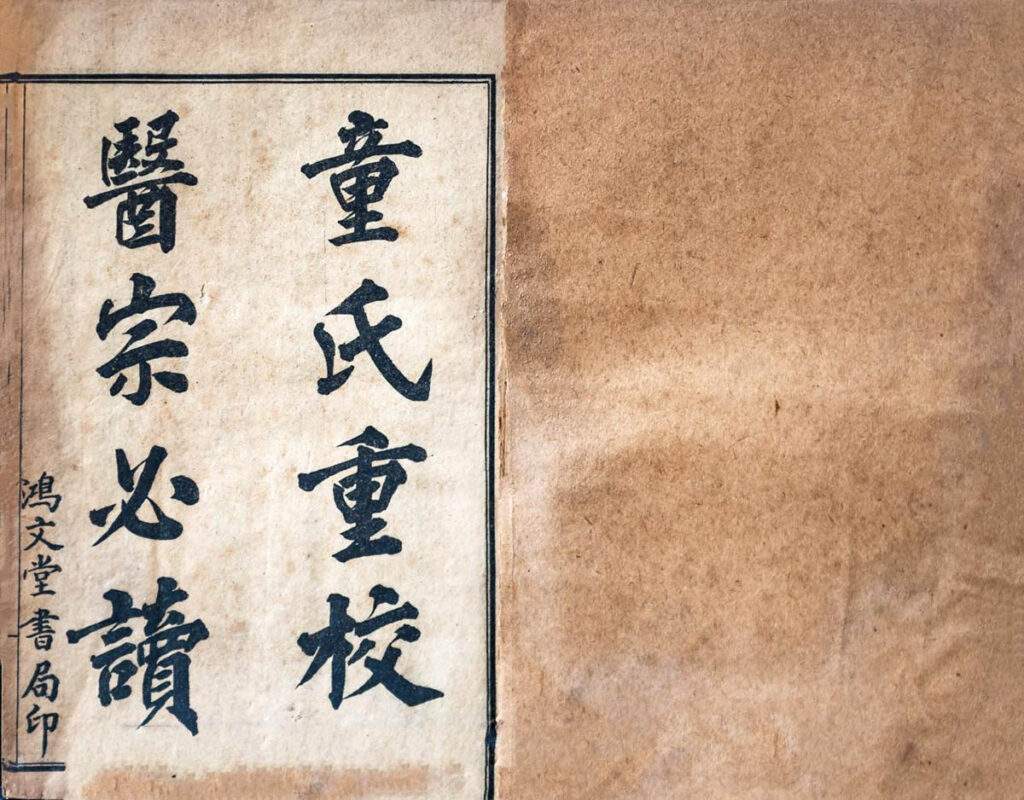 童氏重校
醫宗必讀
鴻文堂書局印